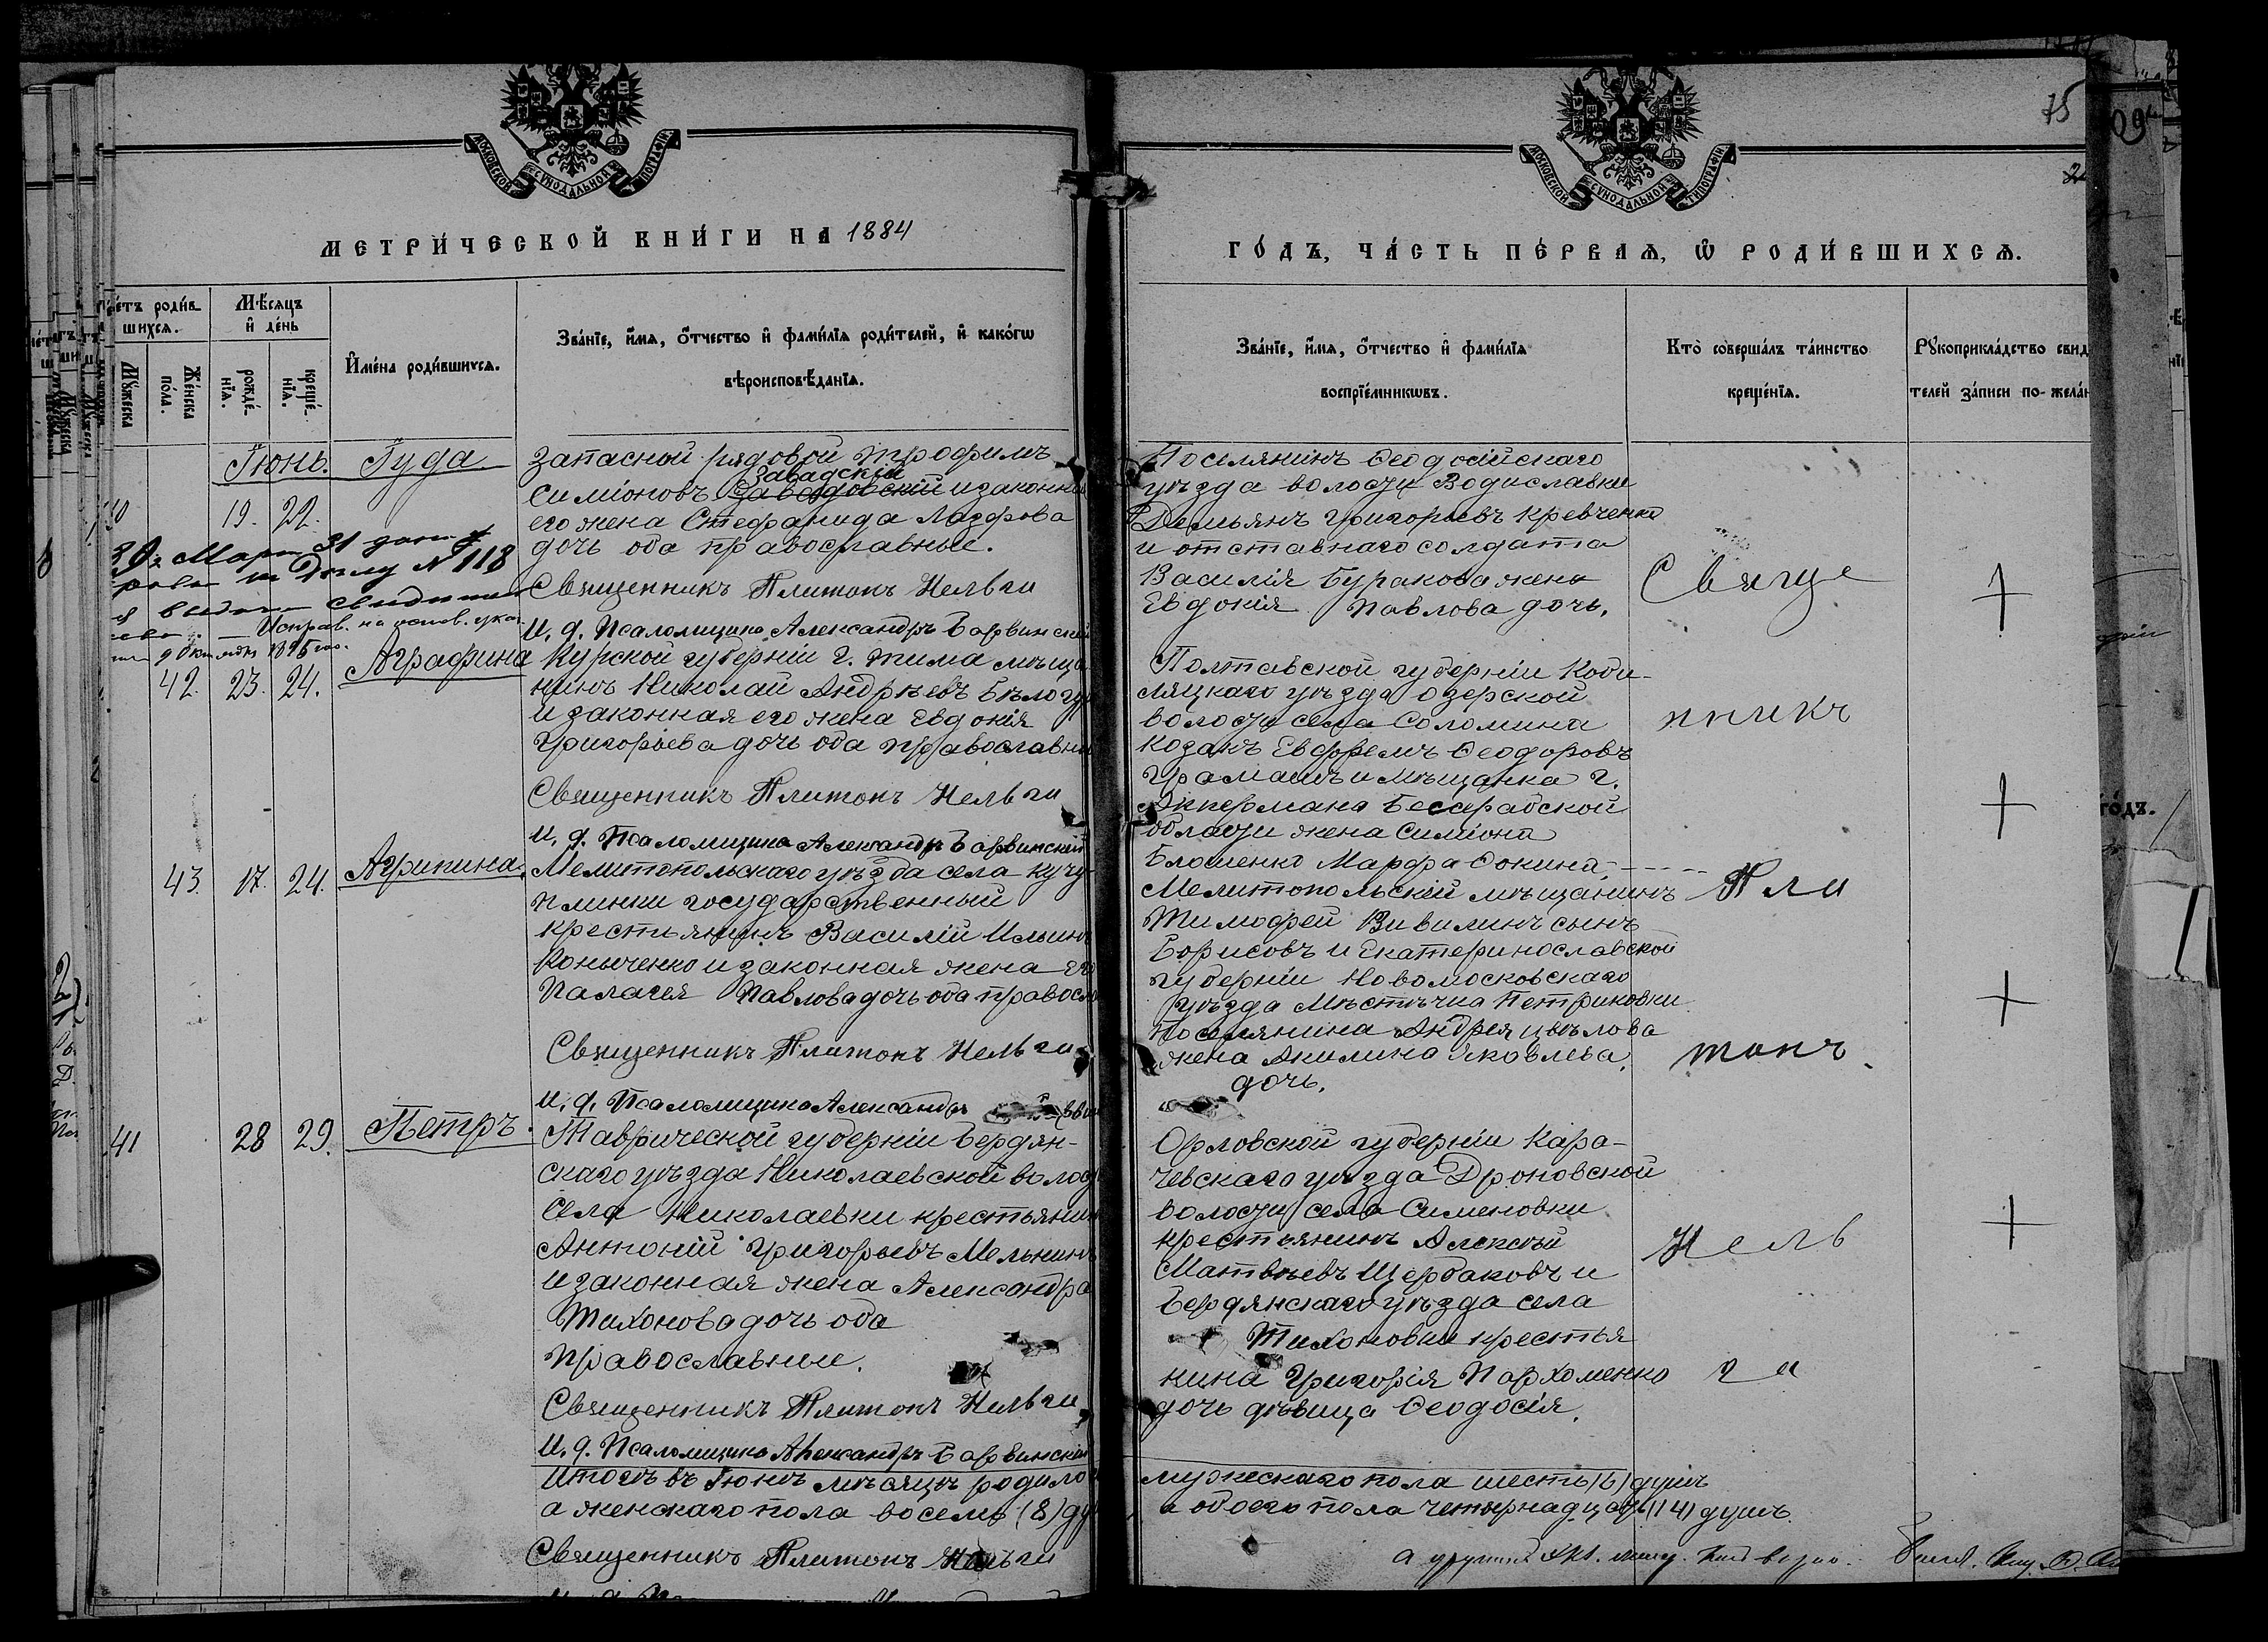 МОСКОВСКОЙ СѴНОДАЛЬНОЙ ТИПОГРАФІИ
МЕТРИ́ЧЕСКОЙ КНИ́ГИ НА 1884
Сче́тъ роди́в-
шихся.
Мѣ́сяцъ
и҆ де́нь
Му́жеска
Же́нска
по́ла.
рожде́-
нїѧ.
креще́-
нїѧ.
И҆мена̀ роди́вшихсѧ.
Зва́нїе, и҆́мѧ, ѻ҆́тчество и҆ фами́лїѧ роди́телей, и҆ како́гѡ
вѣроисповѣ́данїѧ.
Іюнь. Іуда
40 19. 22.
Запасной рядовой Трофимъ
Симіоновъ Завадскій и законная
его жена Стефанида Лазрова
дочь оба православные.
Священникъ Платонъ Нельги
И. д. Псаломщика Александръ Барвинскій
31 № 118
Исправ. на основ. указ.
Аграфина
42. 23. 24.
Курской губерніи г. Тима мѣща
нинъ Николай Андрѣевъ Бѣлогу
и законная его жена Евдокія
Григорьева дочь оба православны
Священникъ Платонъ Нельги
И. д. Псаломщика Александръ Барвинскій
43. 17. 24. Агрипина.
Мелитопольскаго уѣзда села Кучу-
плинки государственный
крестьянинъ Василій Ильинъ
Конченко и законная жена его
Палагея Павлова дочь оба правосл
Священникъ Платонъ Нельги
И. д. Псаломщика Александръ
41 28 29. Петръ.
Таврической губерніи Бердян-
скаго уѣзда Николаевской волос
села Николаевки крестьянин
Антоній Григорьевъ Мельникъ
и законная жена Александра
Тихонова дочь оба
православные.
Священникъ Платонъ Нельги
И. д. Псаломщика Александръ Барвинскій
Итогъ въ Іюнѣ мѣсяцѣ родило
а женскаго пола восемь (8) ду
Священникъ Платонъ Нельги
75
МОСКОВСКОЙ СѴНОДАЛЬНОЙ ТИПОГРАФІИ
ГО́ДЪ, ЧА́СТЬ ПЕ́РВАѦ, Ѡ҆ РОДИ́ВШИХСѦ.
Зва́нїе, и҆́мѧ, ѻ҆́тчество и҆ фами́лїѧ
воспрїе́мникѡвъ.
Кто̀ соверша́лъ та́инство
креще́нїѧ.
Рꙋкоприкла́дство свид
телей за́писи по-жела́н
Поселянинъ Ѳеодосійскаго
уѣзда волости Водиславки
Демьянъ Григорьевъ Кревченко
и отставнаго солдата
Василія Буракова жена
Евдокія Павлова дочь.
Полтавской губерніи Кобы-
ляцкаго уѣзда Озерской
волости села Соломина
козакъ Евфремъ Ѳеодоровъ
и мѣщанка г.
Аккермана Бесарабской
области жена Симіона
Блошенко Марфа Фокина.
Мелитопольскій мѣщанинъ
Тимофей Вивилинъ сынъ
Борисовъ и Екатеринославской
губерніи Новомосковскаго
уѣзда Мѣстечка Петриковки
поселянина Андрея
жена Акилина Яковлева
дочь.
Орловской губерніи Кара-
чевскаго уѣзда Дроновской
волости села Сименовки
крестьянинъ Алексѣй
Матвѣевъ Щербаковъ и
Бердянскаго уѣзда села
Тихоновки крестья
нина Григорія Пархоменко
дочь дѣвица Ѳеодосія.
Свяще
нникъ
Пла
тонъ.
Нель
ги
мужескаго пола шесть (6) душъ
а обоего пола четырнадцать (14) душъ.